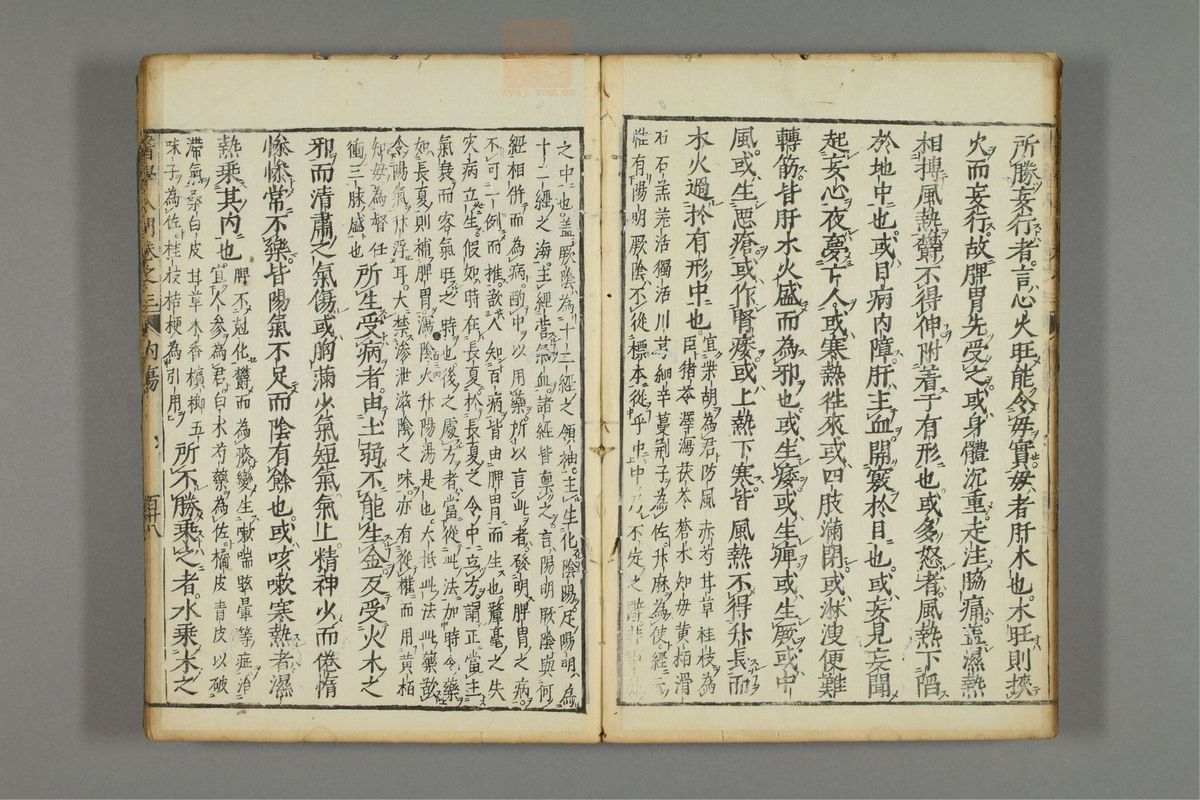 所勝妄行者言心火旺能令母實母者肝木也木旺則挾
火而妄行故脾胃先受之或身體沉重走注脇痛蓋濕熱
相搏風熱欝不得伸附着于有形也或多怒者風熱下陷
於地中也或目病内障肝主血開竅於目也或妄見妄聞
起妄心夜夢亡人或寒熱徃來或四肢滿閉或淋溲便難
轉筋皆肝木火盛而為邪也或生痿或生痺或生厥或中
風或生惡瘡或作腎痿或上熱下寒皆風熱不得升長而
木火遏於有形中也 宜柴胡為君防風 赤芍甘草桂枝為
臣猪苓澤瀉茯苓 蒼朮知母黄栢滑
石石羔羌活獨活川芎細辛蔓荆子為佐升麻為使經云
性有陽明厥陰不從標本從乎中中乃不定之辭
之中也蓋厥陰為十二經之領袖主生化陰陽足陽明為
十二經之海主經營氣血諸經皆禀之言陽明厥陰與何
經相併而為病酌中以用藥所以言此者發明脾胃之病
不可一例而推欲人知百病皆由脾胃而生也釐毫之失
灾病立生假如時在長夏於長夏之令中立方謂正當主
氣衰而客氣旺之時也後之處方者當從此法加時令藥
如長夏則補脾胃瀉陰火升陽湯是也大抵此法此藥歛
令陽氣升浮耳大禁滲泄滋陰之味亦有從權而用黄栢
知母為督任
衝三脉盛也 所生受病者由土弱不能生金反受火木之
邪而清肅之氣傷或胸滿少氣短氣氣上精神少而倦惰
慘慘常不樂皆陽氣不足而陰有餘也或咳嗽寒熱者濕
熱乘其内也 脾不尅化欝而為痰變生嗽喘駭暈等症治
宜人參為君白朮芍藥為佐橘皮青皮以破
滯氣桑白皮甘草木香檳榔五
味子為佐桂枝桔梗為引用 所不勝乘之者水乘木之
醫學入門卷之三 内傷 百十八